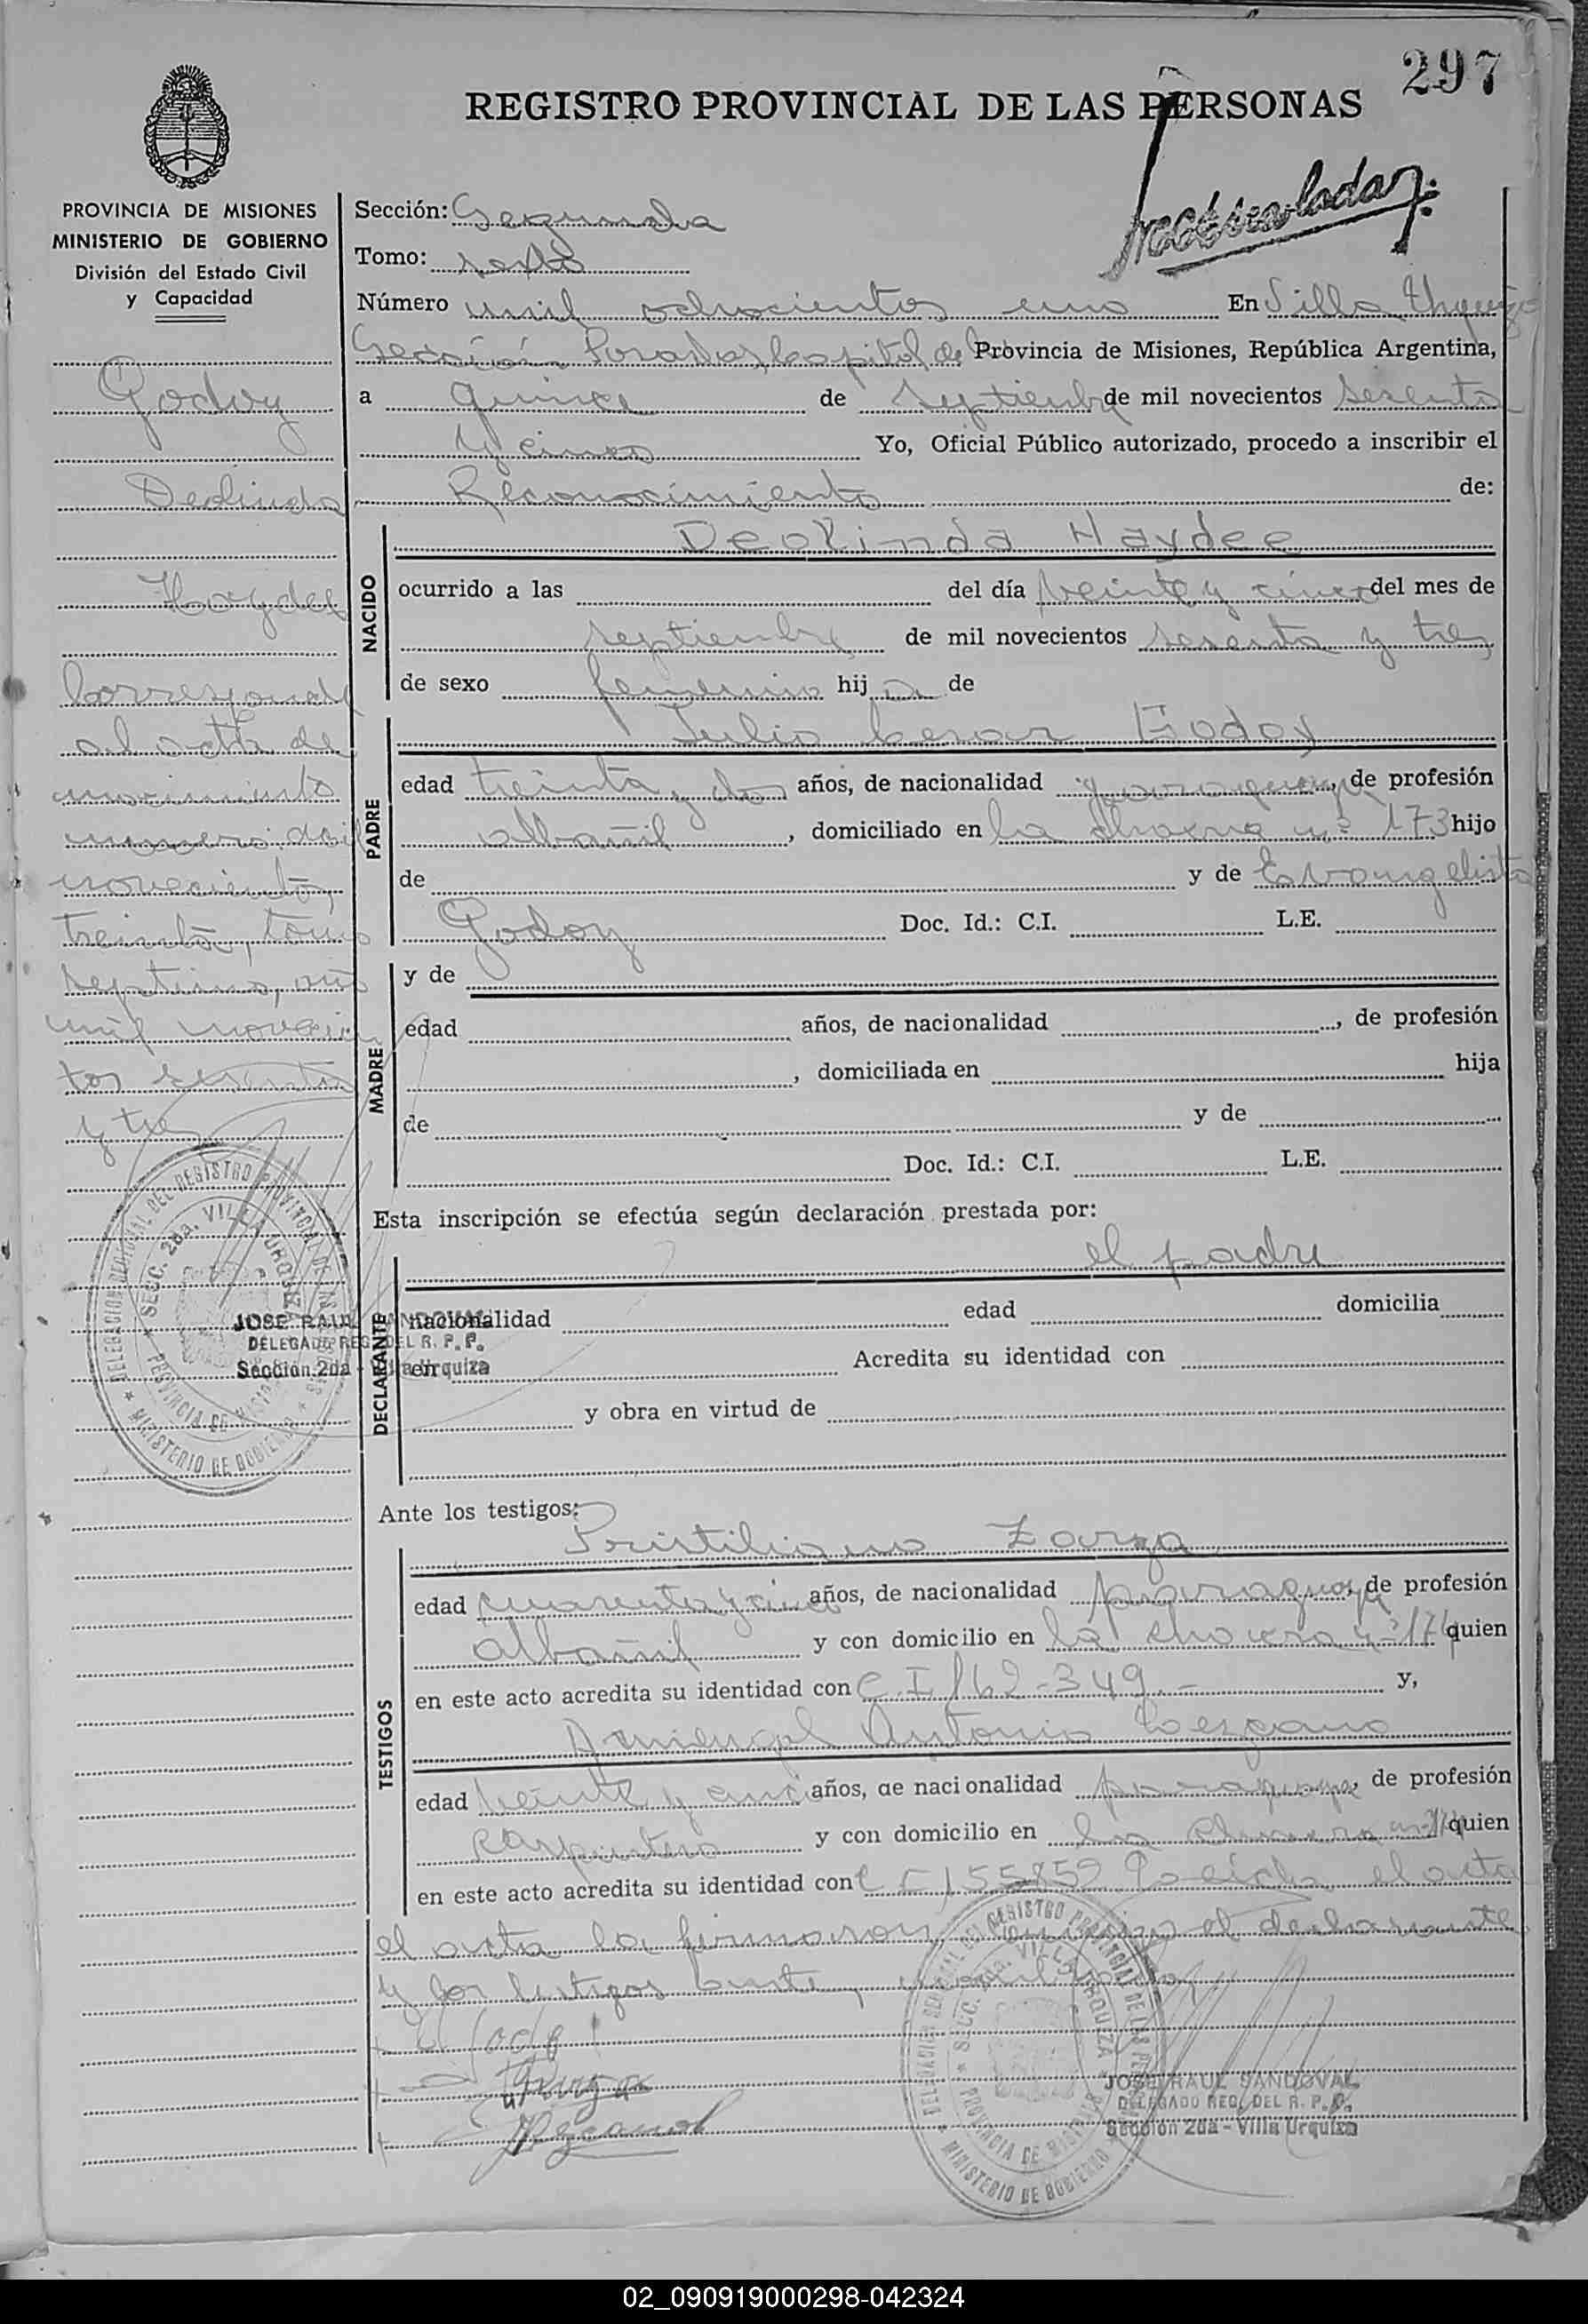 297
REGISTRO PROVINCIAL DE LAS PERSONAS
PROVINCIA DE MISIONES
MINISTERIO DE GOBIERNO
División del Estado Civil
y Capacidad
Godoy
Deolinda
Haydee
Corresponde
al acta de
nacimiento
numero dos mil
novecientos
treinta, tomo
septimo, año
mil novecien
tos sesenta
y tres
DELEGACION REGIONAL DEL REGISTRO PROVINCIAL DE LAS PERSONAS
SECC. 2da. VILLA URQUIZA
PROVINCIA DE MISIONES
MINISTERIO DE GOBIERNO
JOSE RAUL SANDOVAL
DELEGADO REG. DEL R. P. P.
Sección 2da - Villa Urquiza
Sección: Segunda
Tomo: sexto
Número mil ochocientos uno En Villa Urquiza
Sección Posadas Capital de Provincia de Misiones, República Argentina,
a quince de septiembre de mil novecientos sesenta
y cinco Yo, Oficial Público autorizado, procedo a inscribir el
Reconocimiento de:
NACIDO
Deolinda Haydee
ocurrido a las del día veinte y cinco del mes de
septiembre de mil novecientos sesenta y tres
de sexo femenino hij a de
PADRE
Julio Cesar Godoy
edad treinta y dos años, de nacionalidad paraguaya, de profesión
albañil, domiciliado en la chacra nº 173 hijo
de y de Evangelista
Godoy Doc. Id.: C.I. L.E.
MADRE
y de
edad años, de nacionalidad , de profesión
, domiciliada en hija
de y de
Doc. Id.: C.I. L.E.
Esta inscripción se efectúa según declaración prestada por:
DECLARANTE
el padre
nacionalidad edad domicilia
en Acredita su identidad con
y obra en virtud de
Ante los testigos:
TESTIGOS
Zarza
edad cuarenta y cinco años, de nacionalidad paraguaya, de profesión
albañil y con domicilio en la chacra nº 174 quien
en este acto acredita su identidad con C.I 162-349.- y,
Antonio Lezcano
edad veinte y cinco años, de nacionalidad paraguaya, de profesión
carpintero y con domicilio en la chacra quien
en este acto acredita su identidad con C I 155859 Leída el acta
el acta la firmaron el declarante
y los testigos ante
Zarza
Lezcano
DELEGACION REGIONAL DEL REGISTRO PROVINCIAL DE LAS PERSONAS
SECC. 2da. VILLA URQUIZA
PROVINCIA DE MISIONES
MINISTERIO DE GOBIERNO
JOSE RAUL SANDOVAL
DELEGADO REG. DEL R. P. P.
Sección 2da - Villa Urquiza
02_090919000298-042324